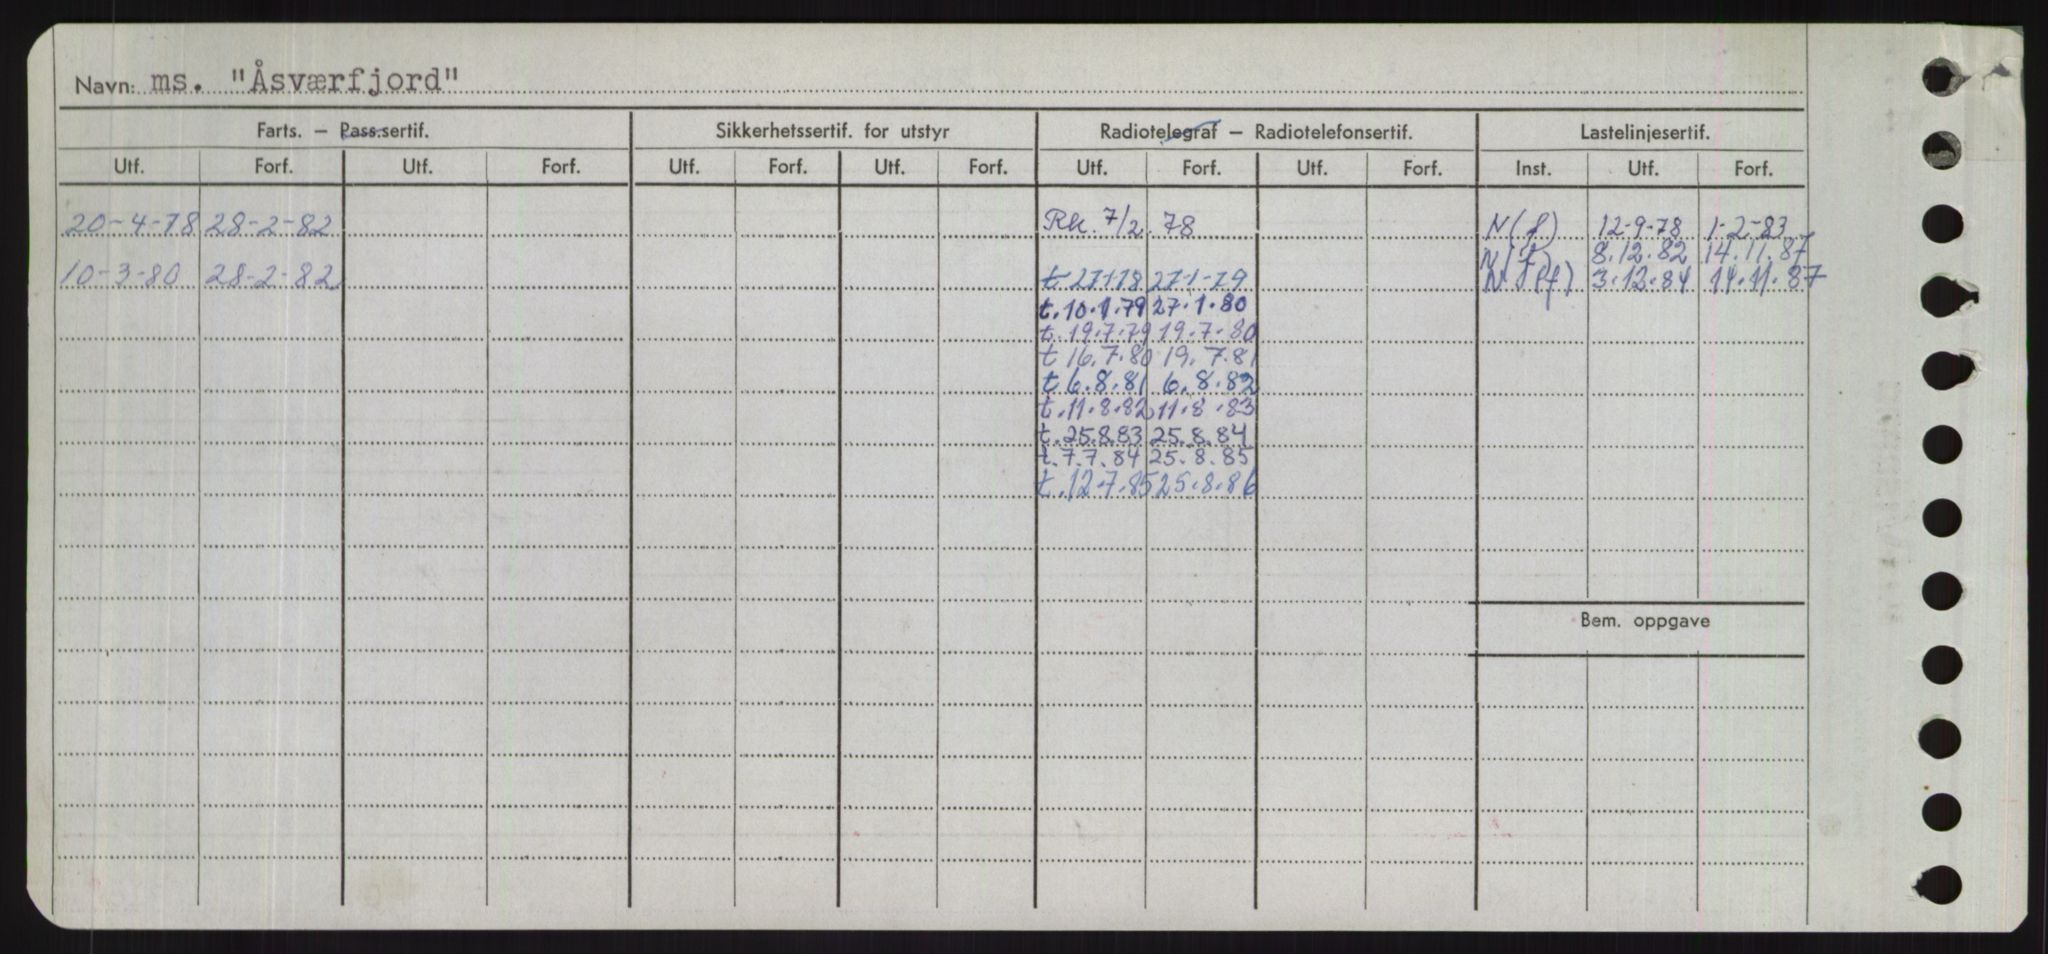 Navn: ms. "Åsværfjord"
Farts. – Pass.sertif. Sikkerhetssertif. for utstyr Radiotelegraf – Radiotelefonsertif. Lastelinjesertif.
Utf. Forf. Utf. Forf. Utf. Forf. Utf. Forf. Utf. Forf. Utf. Forf. Inst. Utf. Forf.
20-4-78 28-2-82 Rk. 7/2 78 N(f) 12-9-78 1-2-83
N(f) 8.12.82 14.11.87
10-3-80 28-2-82 t 27-1-78 27-1-79 N (f) 3.12.84 14.11.87
t.10.1.79 27.1.80
t.19.7.79 19.7.80
t 16.7.80 19.7.81
t 6.8.81 6.8.82
t.11.8.82 11.8.83
t.25.8.83 25.8.84
t.7.7.84 25.8.85
t.12.7.85 25.8.86
Bem. oppgave